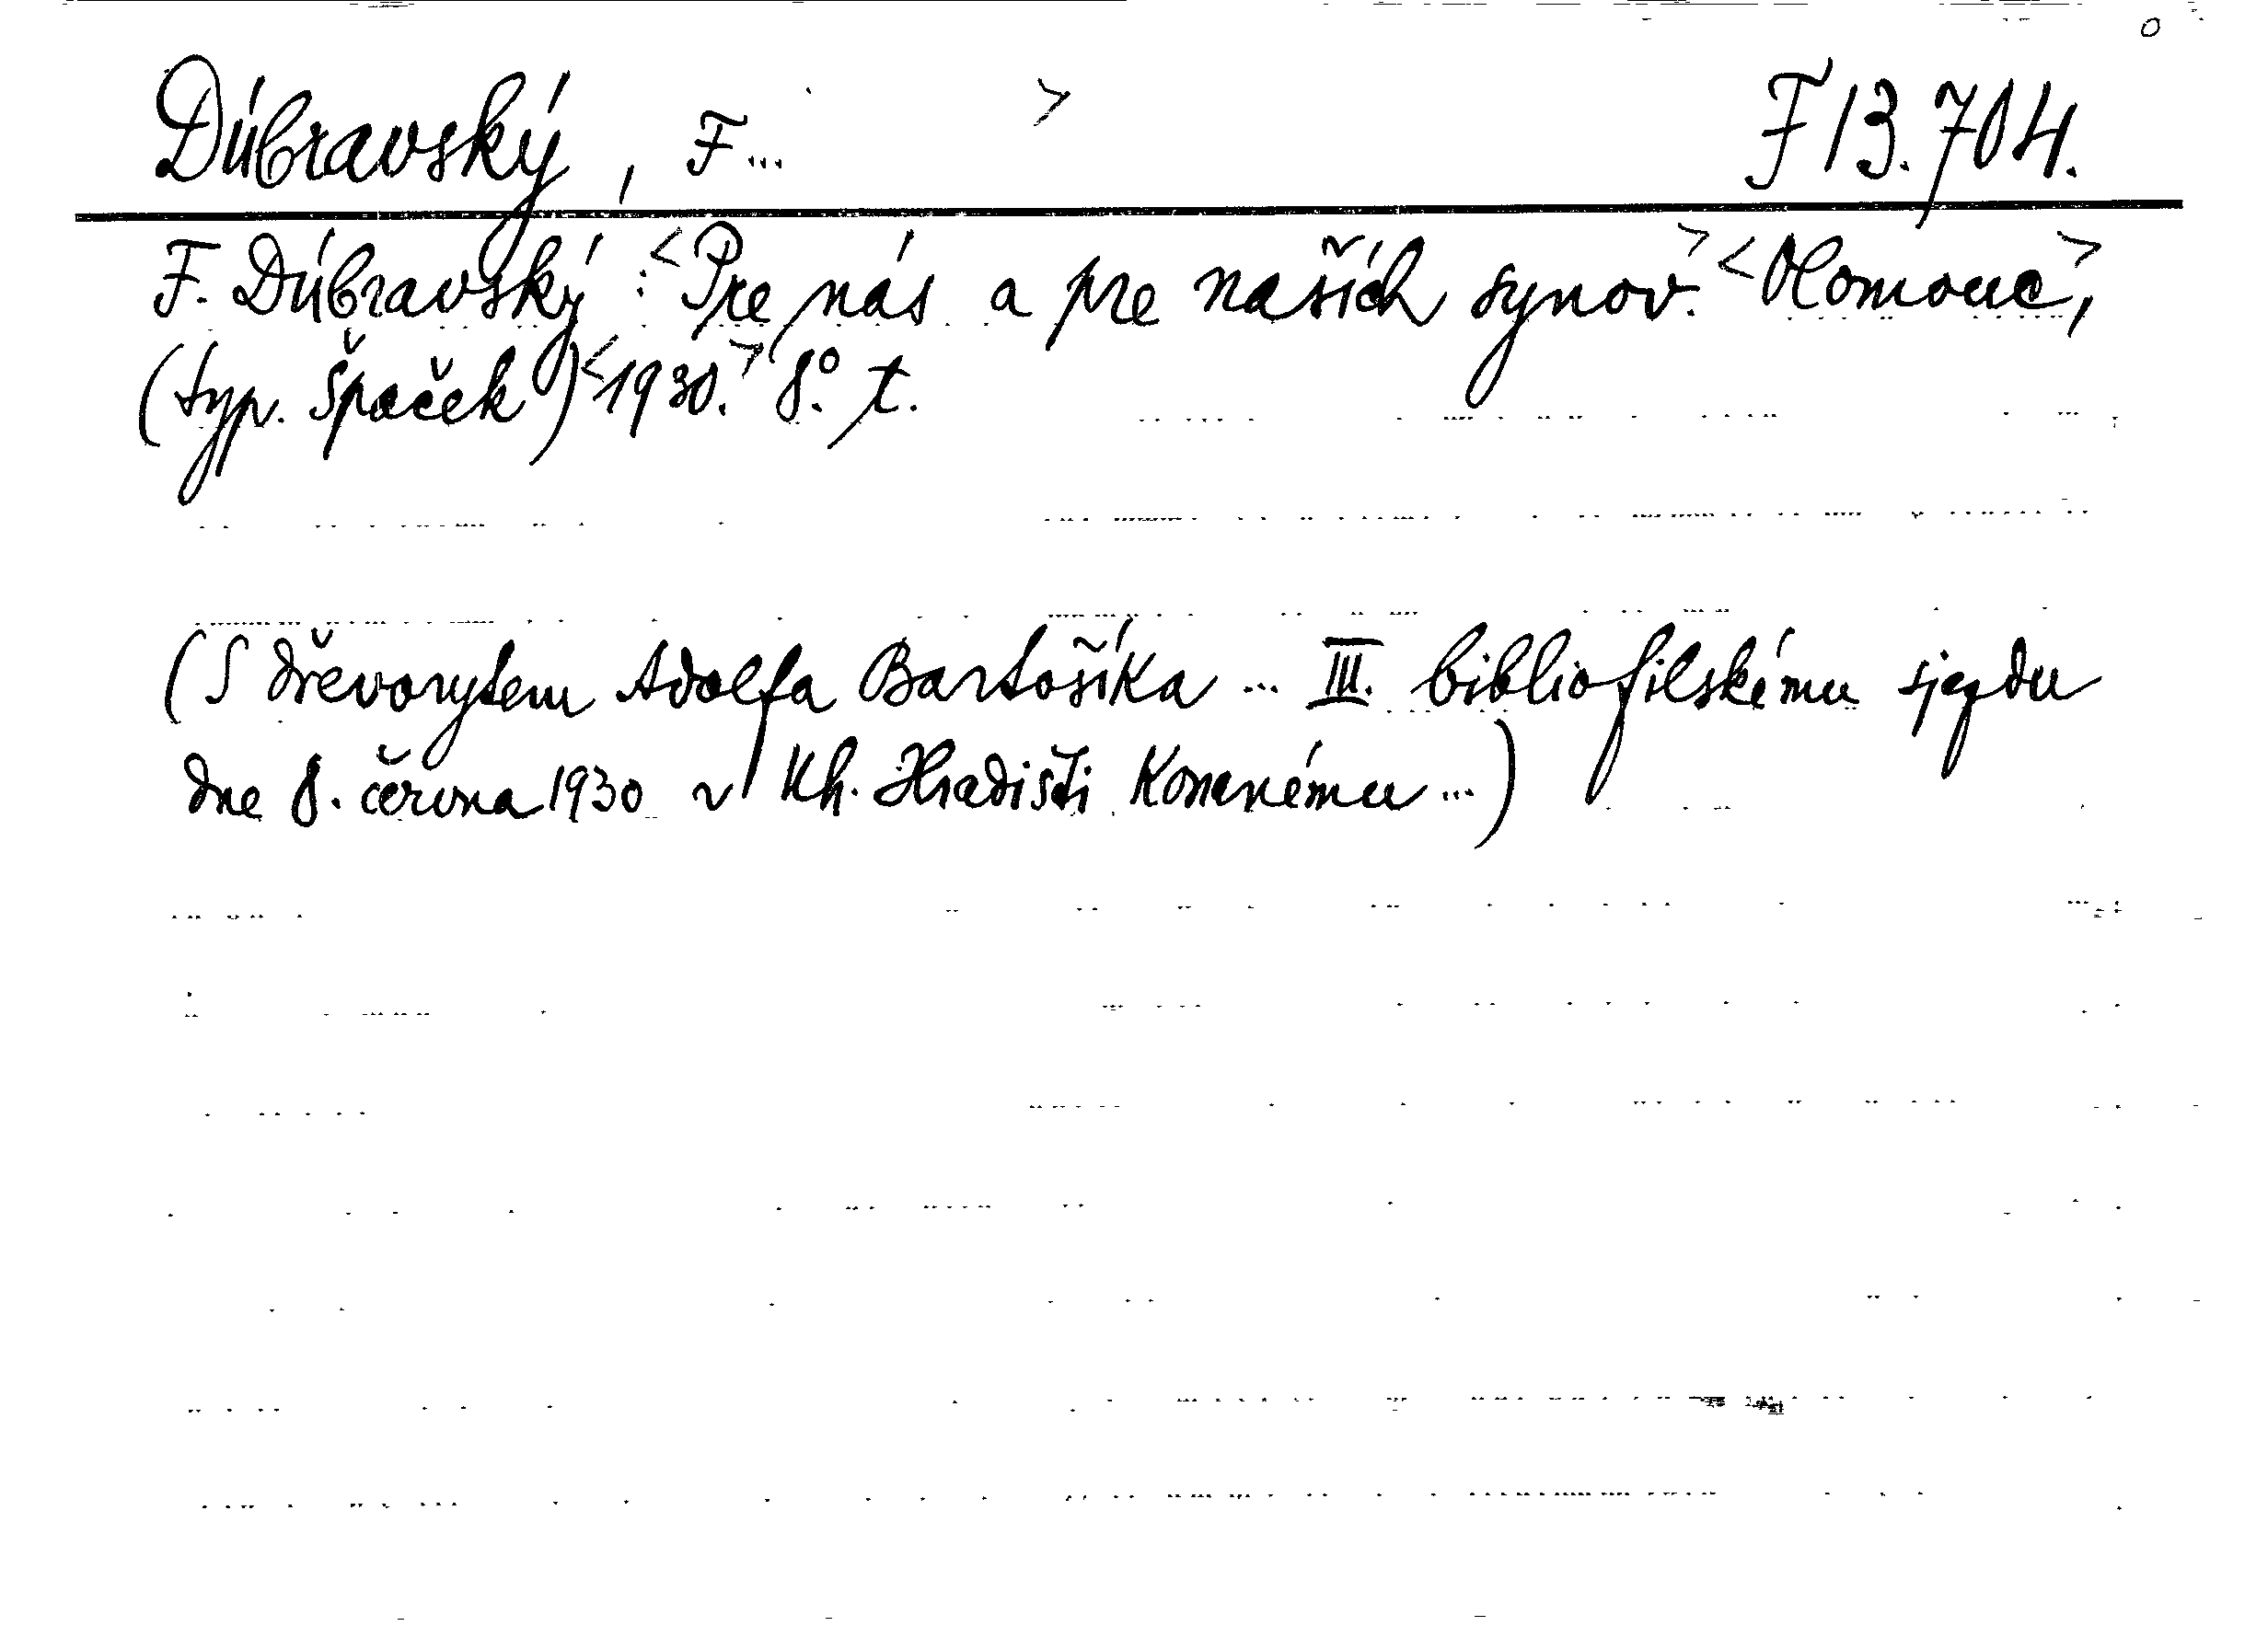 Dúbravský, F... > F 13.704.
F. Dúbravský: <Pre nás a pre naších synov.> <Olomouc>,
(typ. Špaček) <1930.> 8°. t.
(S dřevorytem Adolfa Bartošíka ... III. bibliofilskému sjezdu
dne 8. června 1930 v Uh. Hradišti konanému ...)